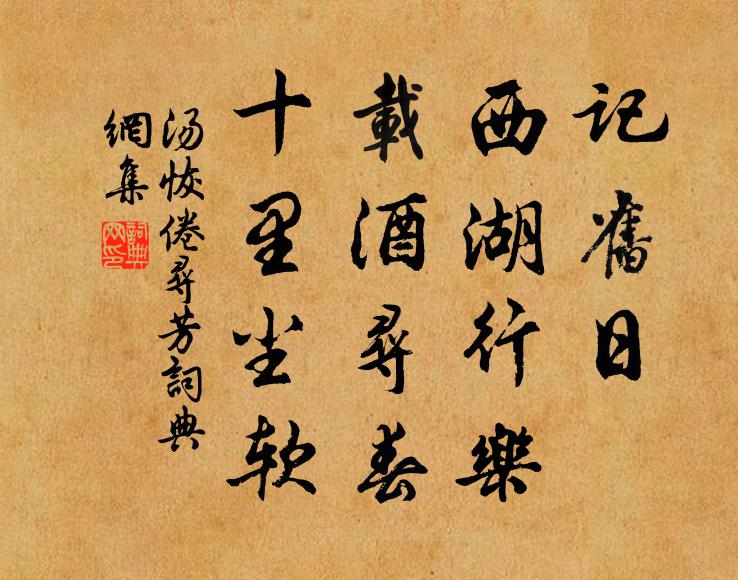 記舊日
西湖行樂
載酒尋春
十里尘软
湯恢倦尋芳詞典
網集
詞典
网印